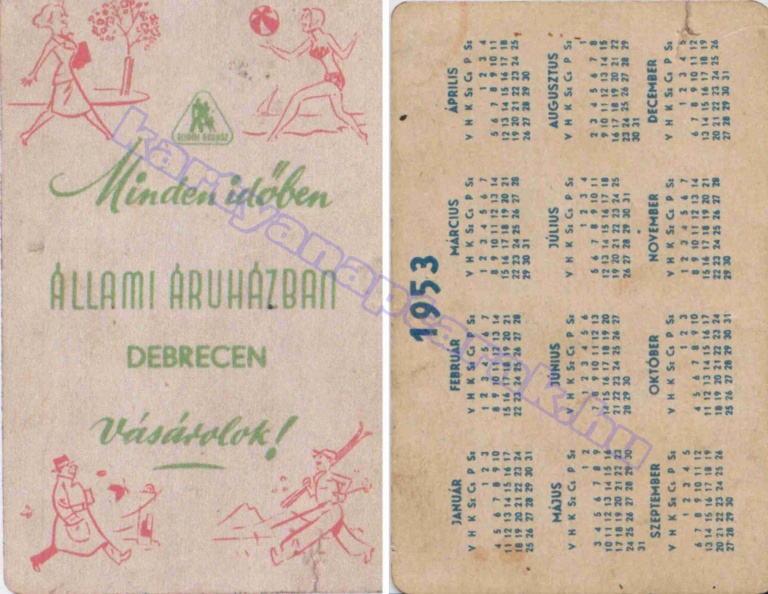 ÁLLAMI ÁRUHÁZ
Minden időben
ÁLLAMI ÁRUHÁZBAN
DEBRECEN
Vásárolok!
kartyanaptarok.hu
1953
JANUÁR
V H K Sz Cs P Sz
1 2 3
4 5 6 7 8 9 10
11 12 13 14 15 16 17
18 19 20 21 22 23 24
25 26 27 28 29 30 31
FEBRUÁR
V H K Sz Cs P Sz
1 2 3 4 5 6 7
8 9 10 11 12 13 14
15 16 17 18 19 20 21
22 23 24 25 26 27 28
MÁRCIUS
V H K Sz Cs P Sz
1 2 3 4 5 6 7
8 9 10 11 12 13 14
15 16 17 18 19 20 21
22 23 24 25 26 27 28
29 30 31
ÁPRILIS
V H K Sz Cs P Sz
1 2 3 4
5 6 7 8 9 10 11
12 13 14 15 16 17 18
19 20 21 22 23 24 25
26 27 28 29 30
MÁJUS
V H K Sz Cs P Sz
1 2
3 4 5 6 7 8 9
10 11 12 13 14 15 16
17 18 19 20 21 22 23
24 25 26 27 28 29 30
31
JÚNIUS
V H K Sz Cs P Sz
1 2 3 4 5 6
7 8 9 10 11 12 13
14 15 16 17 18 19 20
21 22 23 24 25 26 27
28 29 30
JÚLIUS
V H K Sz Cs P Sz
1 2 3 4
5 6 7 8 9 10 11
12 13 14 15 16 17 18
19 20 21 22 23 24 25
26 27 28 29 30 31
AUGUSZTUS
V H K Sz Cs P Sz
1
2 3 4 5 6 7 8
9 10 11 12 13 14 15
16 17 18 19 20 21 22
23 24 25 26 27 28 29
30 31
SZEPTEMBER
V H K Sz Cs P Sz
1 2 3 4 5
6 7 8 9 10 11 12
13 14 15 16 17 18 19
20 21 22 23 24 25 26
27 28 29 30
OKTÓBER
V H K Sz Cs P Sz
1 2 3
4 5 6 7 8 9 10
11 12 13 14 15 16 17
18 19 20 21 22 23 24
25 26 27 28 29 30 31
NOVEMBER
V H K Sz Cs P Sz
1 2 3 4 5 6 7
8 9 10 11 12 13 14
15 16 17 18 19 20 21
22 23 24 25 26 27 28
29 30
DECEMBER
V H K Sz Cs P Sz
1 2 3 4 5
6 7 8 9 10 11 12
13 14 15 16 17 18 19
20 21 22 23 24 25 26
27 28 29 30 31